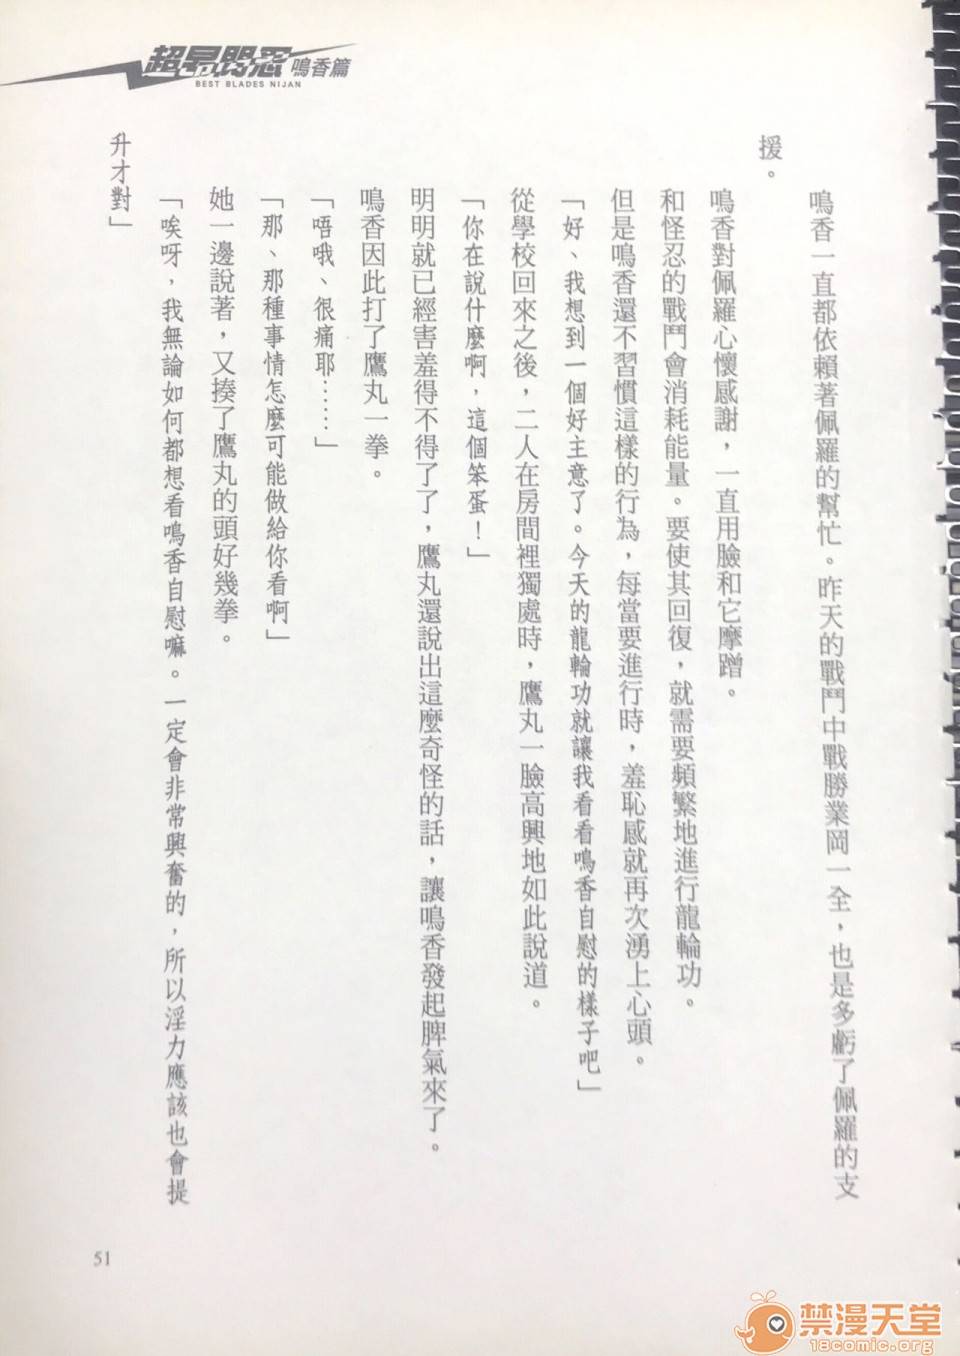 超昂閃忍 鳴香篇
BEST BLADES NIJAN
鳴香一直都依賴著佩羅的幫忙。昨天的戰鬥中戰勝業岡一全，也是多虧了佩羅的支
援。
鳴香對佩羅心懷感謝，一直用臉和它摩蹭。
和怪忍的戰鬥會消耗能量。要使其回復，就需要頻繁地進行龍輪功。
但是鳴香還不習慣這樣的行為，每當要進行時，羞恥感就再次湧上心頭。
「好、我想到一個好主意了。今天的龍輪功就讓我看看鳴香自慰的樣子吧」
從學校回來之後，二人在房間裡獨處時，鷹丸一臉高興地如此說道。
「你在說什麼啊，這個笨蛋！」
明明就已經害羞得不得了了，鷹丸還說出這麼奇怪的話，讓鳴香發起脾氣來了。
鳴香因此打了鷹丸一拳。
「唔哦、很痛耶……」
「那、那種事情怎麼可能做給你看啊」
她一邊說著，又揍了鷹丸的頭好幾拳。
「唉呀，我無論如何都想看鳴香自慰嘛。一定會非常興奮的，所以淫力應該也會提
升才對」
51
禁漫天堂
18comic.org